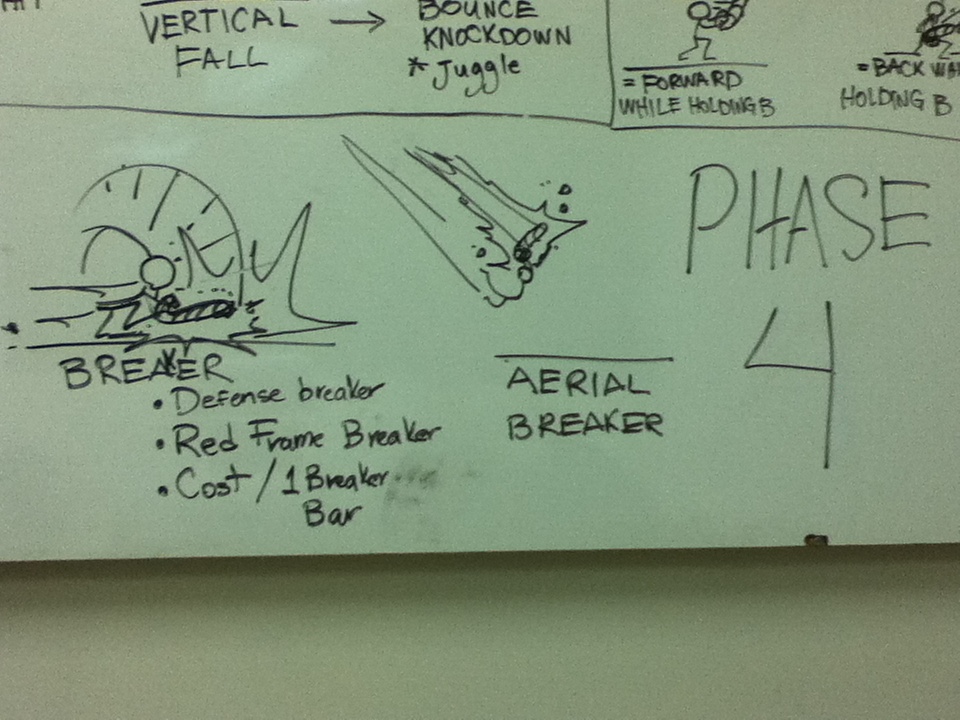 VERTICAL
FALL
BOUNCE
KNOCKDOWN
* Juggle
= FORWARD
WHILE HOLDING B
= BACK
HOLDING B
PHASE
4
BREAKER
• Defense breaker
• Red Frame Breaker
• Cost / 1 Breaker
Bar
AERIAL
BREAKER